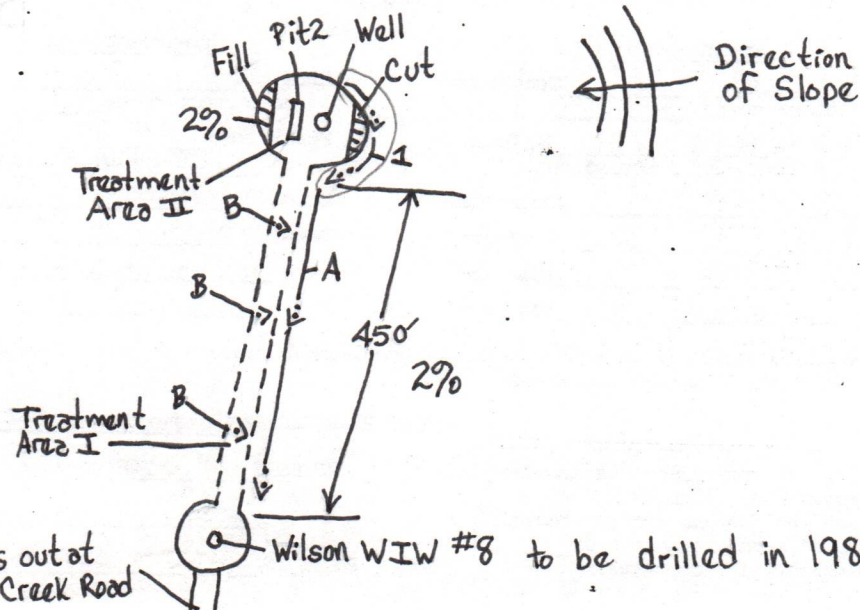 Pit2
Well
Fill
Cut
Direction
of Slope
2%
1
Treatment
Area II
B
A
B
450'
2%
B
Treatment
Area I
s out at
Creek Road
Wilson WIW #8 to be drilled in 198